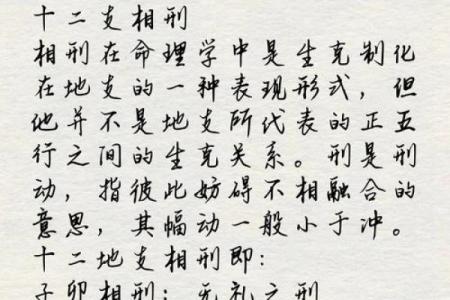 十二支相刑
相刑在命理学中是生克制化
在地支的一种表现形式，但
他并不是地支所代表的正五
行之间的生克关系。刑是刑
动，指彼此妨碍不相融合的
意思，其幅动一般小于冲。
十二地支相刑即：
子卯相刑：无礼之刑